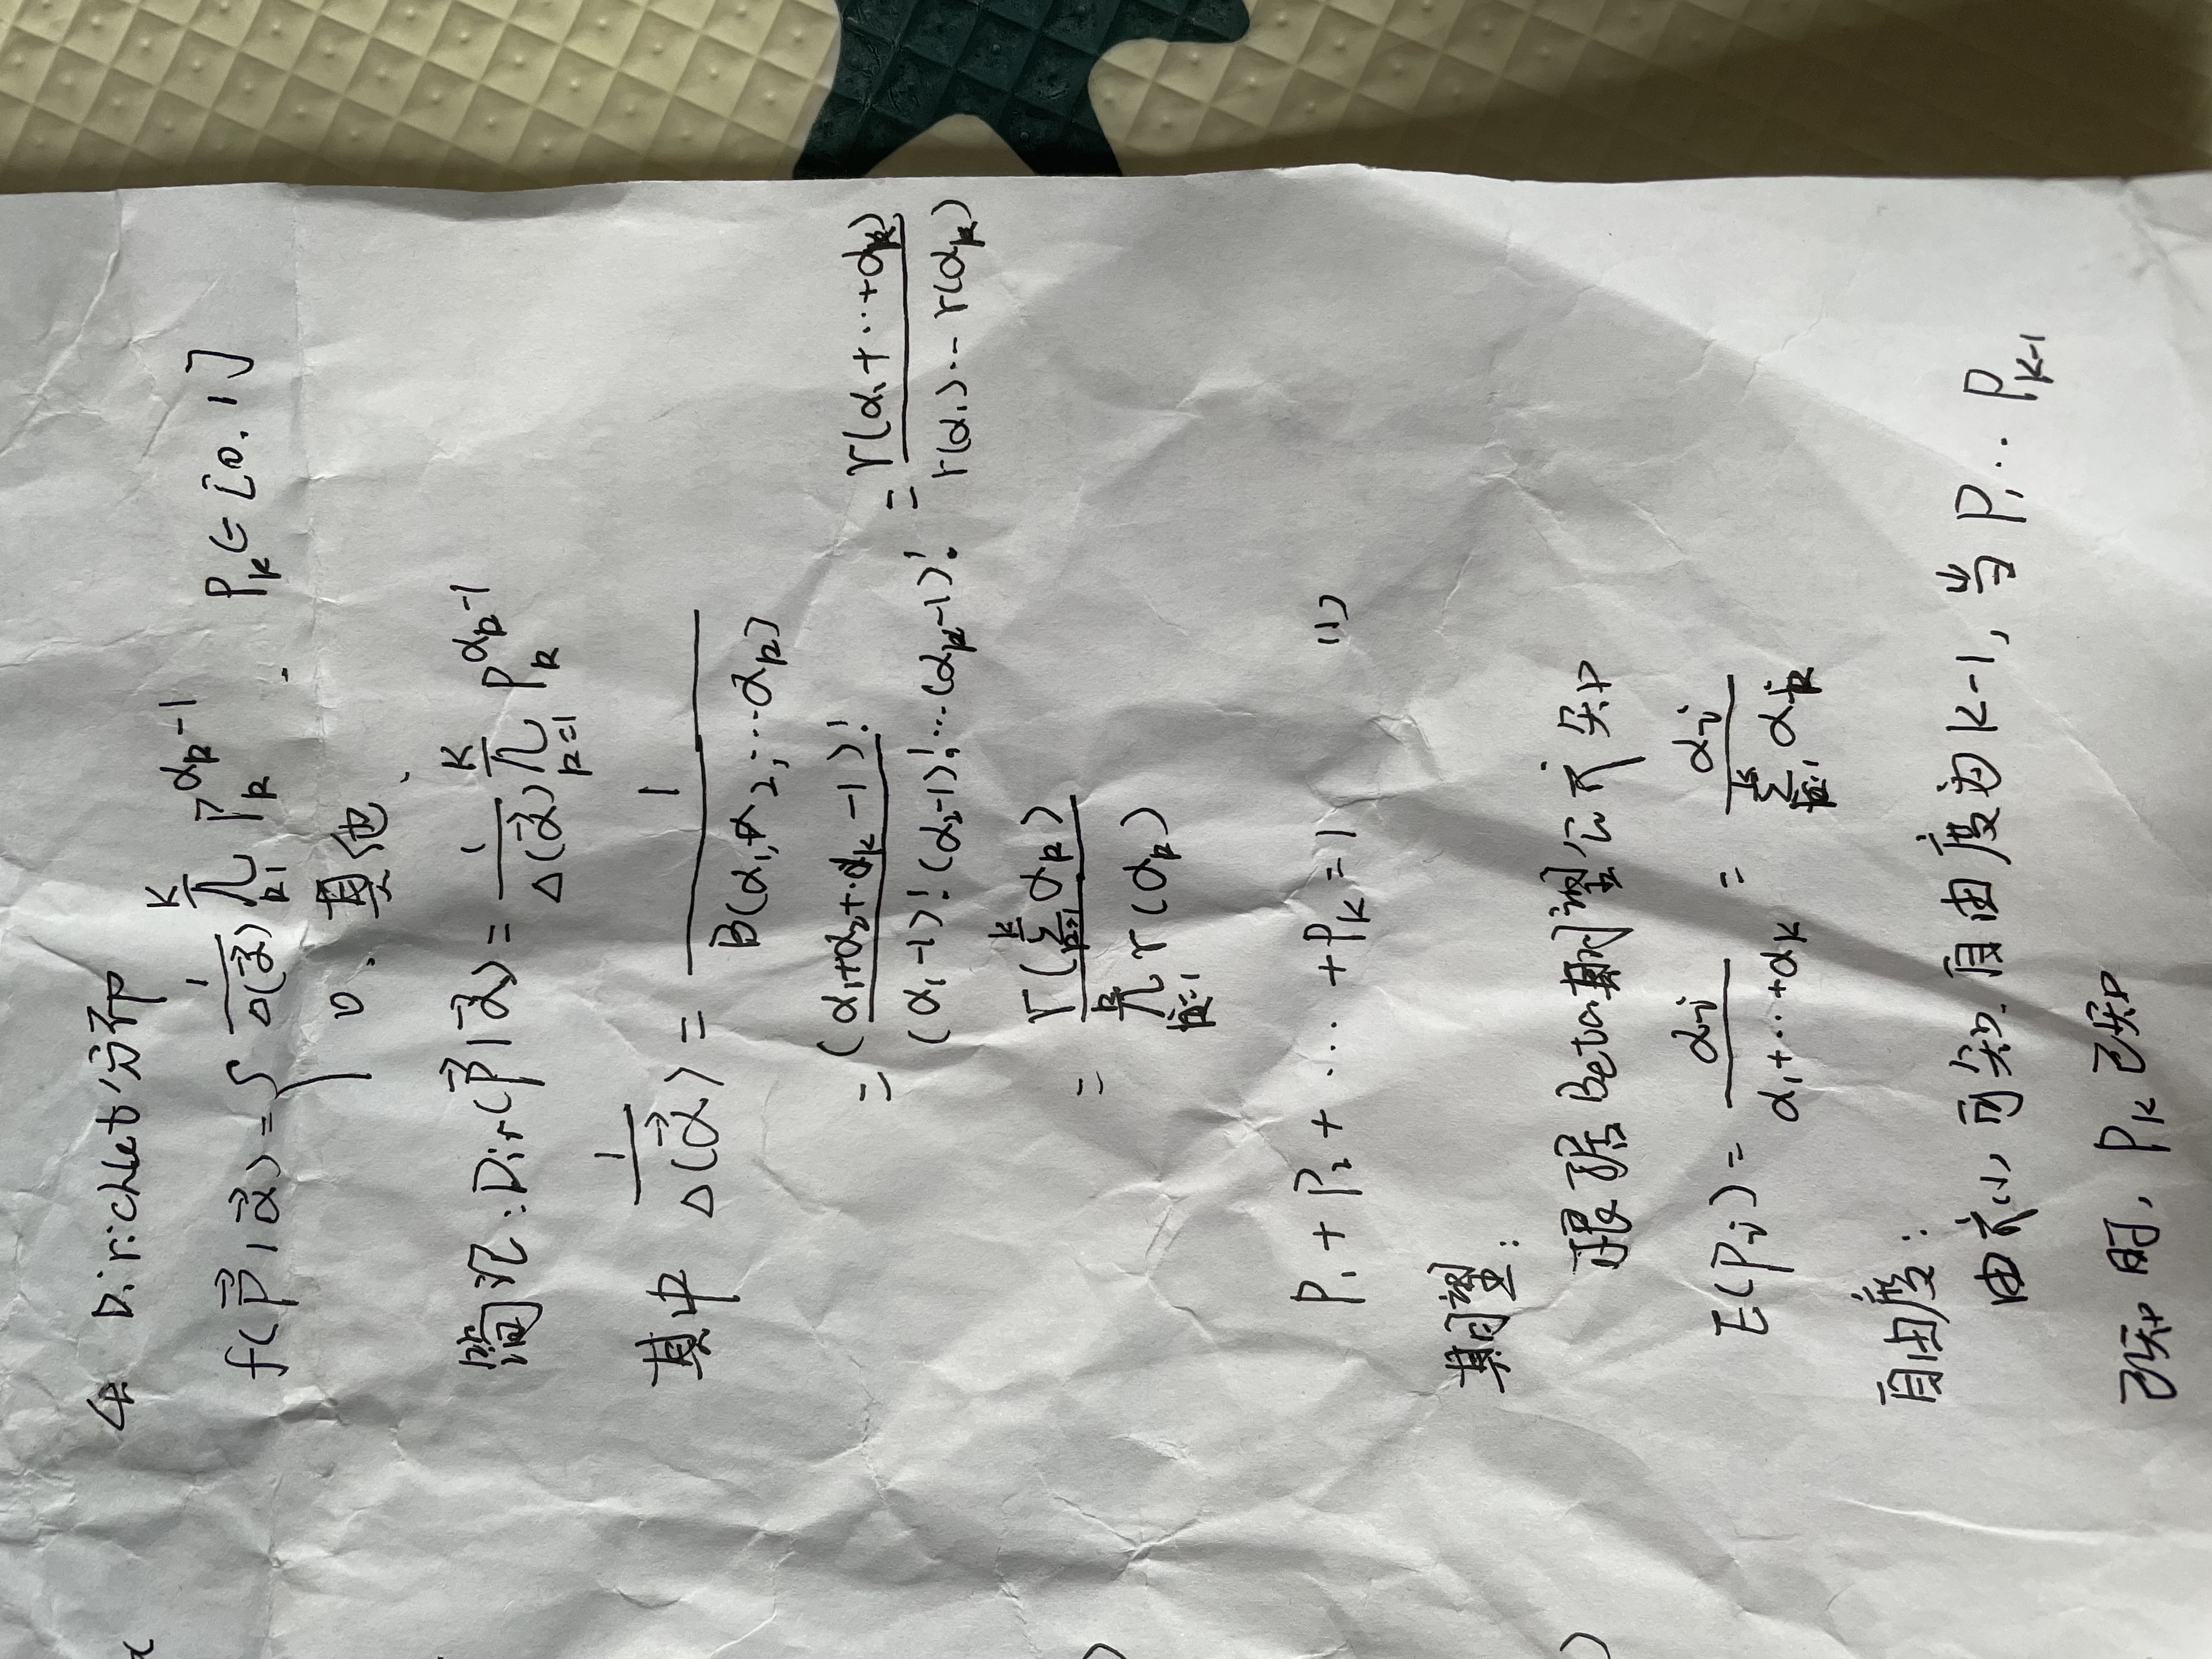 4. Dirichlet分布
f(\vec{P}|\vec{α}) = { \frac{1}{Δ(\vec{α})} \prod_{k=1}^{K} P_k^{α_k-1} . P_k∈[0,1]
0. 其他.
简记:Dir(\vec{P}|\vec{α}) = \frac{1}{Δ(\vec{α})} \prod_{k=1}^{K} P_k^{α_k-1}
其中 \frac{1}{Δ(\vec{α})} = \frac{1}{B(α_1,α_2,…α_k)}
= \frac{(α_1+α_2+…α_k-1)!}{(α_1-1)!(α_2-1)!…(α_k-1)!} = \frac{Γ(α_1+…+α_k)}{Γ(α_1)…Γ(α_k)}
= \frac{Γ(\sum_{k=1}^{K} α_k)}{\prod_{k=1}^{k} Γ(α_k)}
P_1+P_2+…+P_K=1 (1)
期望:
根据Beta期望公式知
E(P_i) = \frac{α_i}{α_1+…+α_K} = \frac{α_i}{\sum_{k=1}^{K} α_k}
自由度:
由式(1)可知.自由度为K-1,当P_1…P_{K-1}
已知时,P_K已知